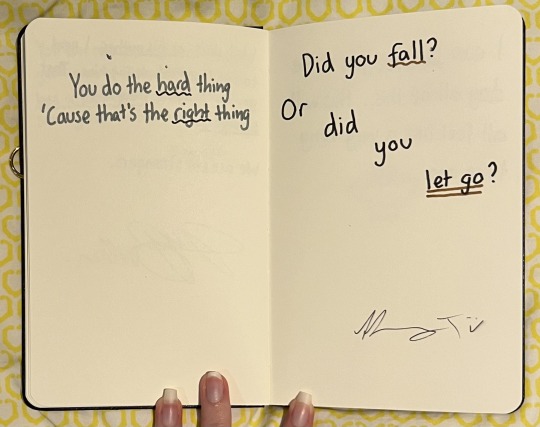 You do the hard thing
'Cause that's the right thing
Did you fall?
Or did you let go?